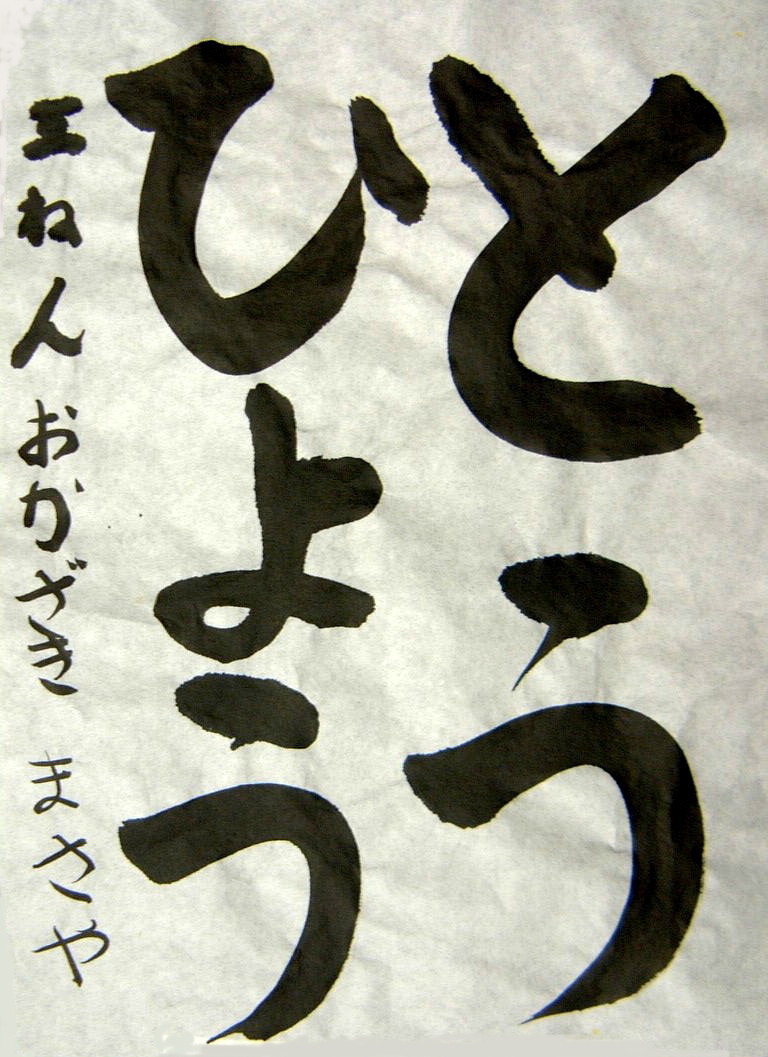 とう
ひょう
三ねん おかざき まさや